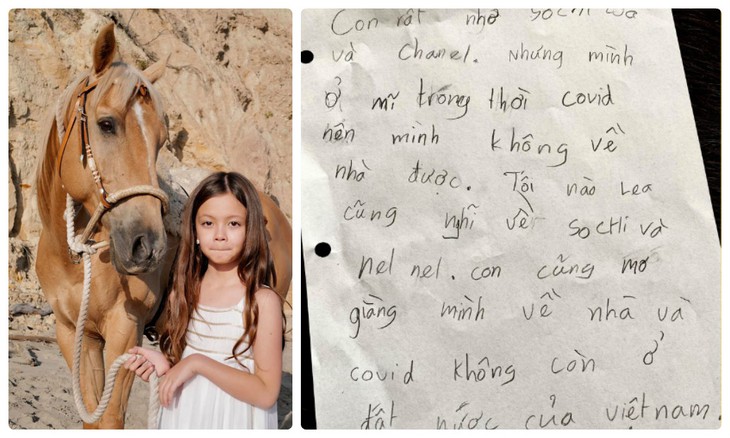 Con rất nhớ sochi
và Chanel. Nhưng mình
ở mĩ trong thời covid
nên mình không về
nhà được. Tối nào Lea
cũng nghĩ về sochi và
nel nel. con cũng mơ
giàng mình về nhà và
covid không còn ở
đất nước của việtnam.